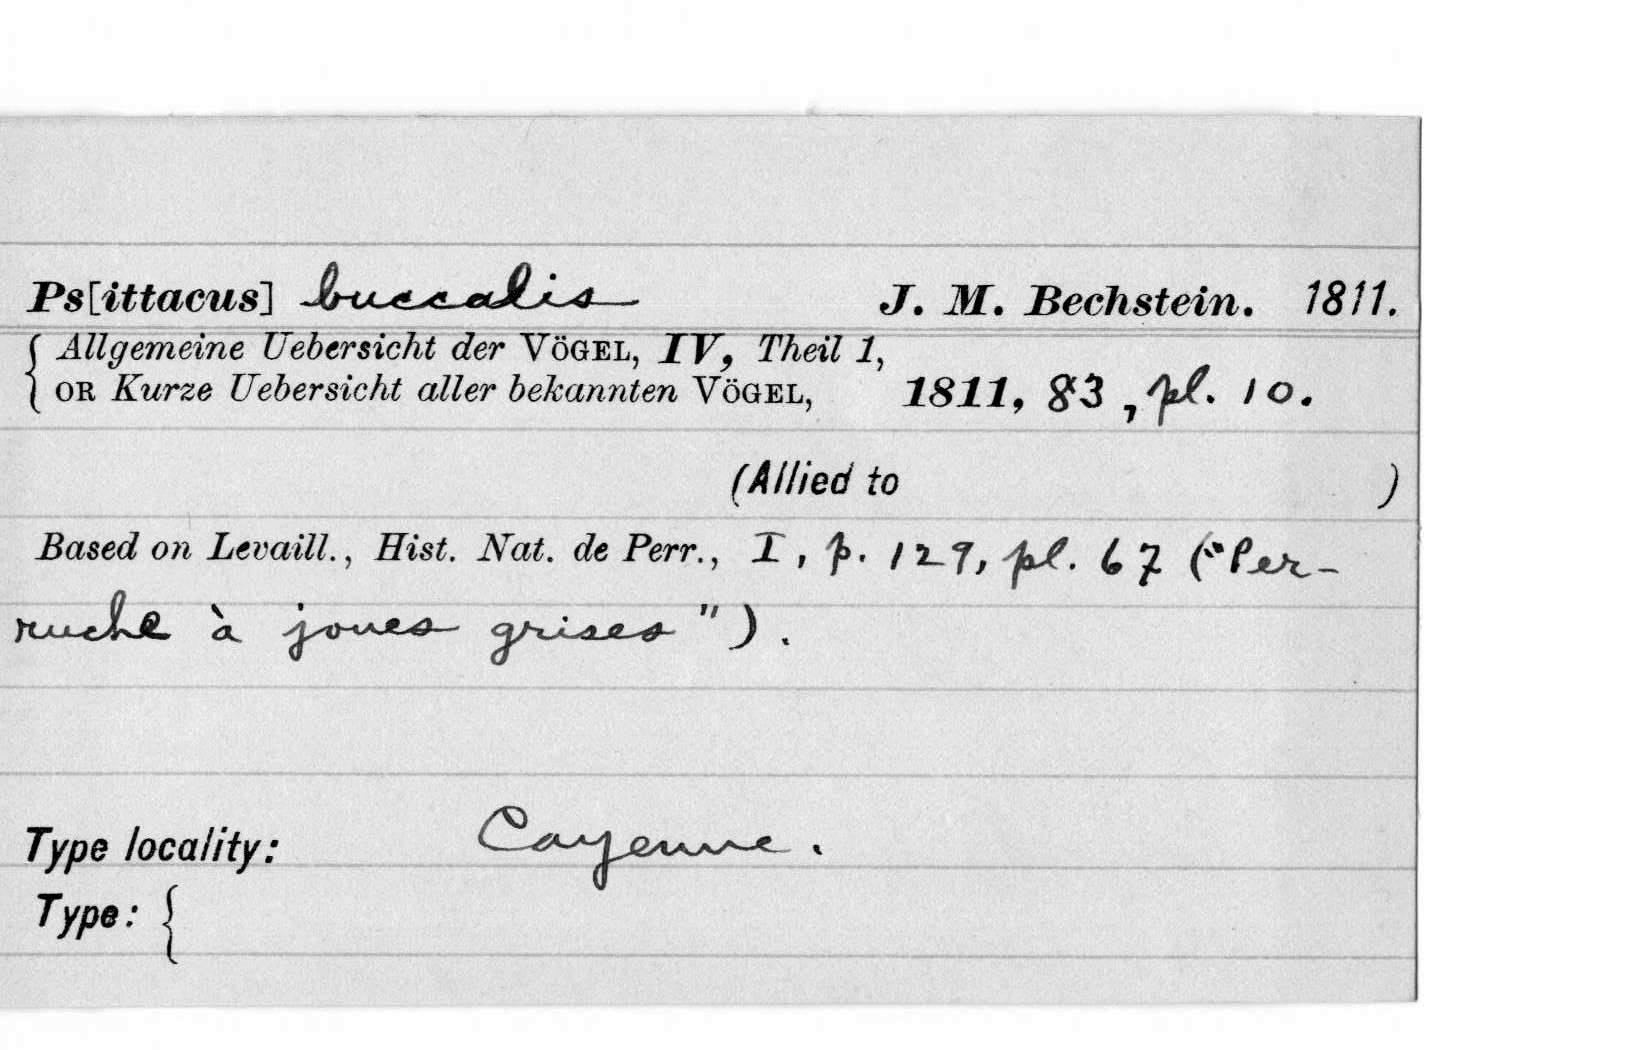 Ps[ittacus] buccalis J. M. Bechstein. 1811.
{ Allgemeine Uebersicht der VÖGEL, IV, Theil 1,
{ OR Kurze Uebersicht aller bekannten VÖGEL, 1811, 83, pl. 10.
(Allied to )
Based on Levaill., Hist. Nat. de Perr., I, p. 129, pl. 67 ("Per-
ruche à joues grises").
Type locality: Cayenne.
Type: {